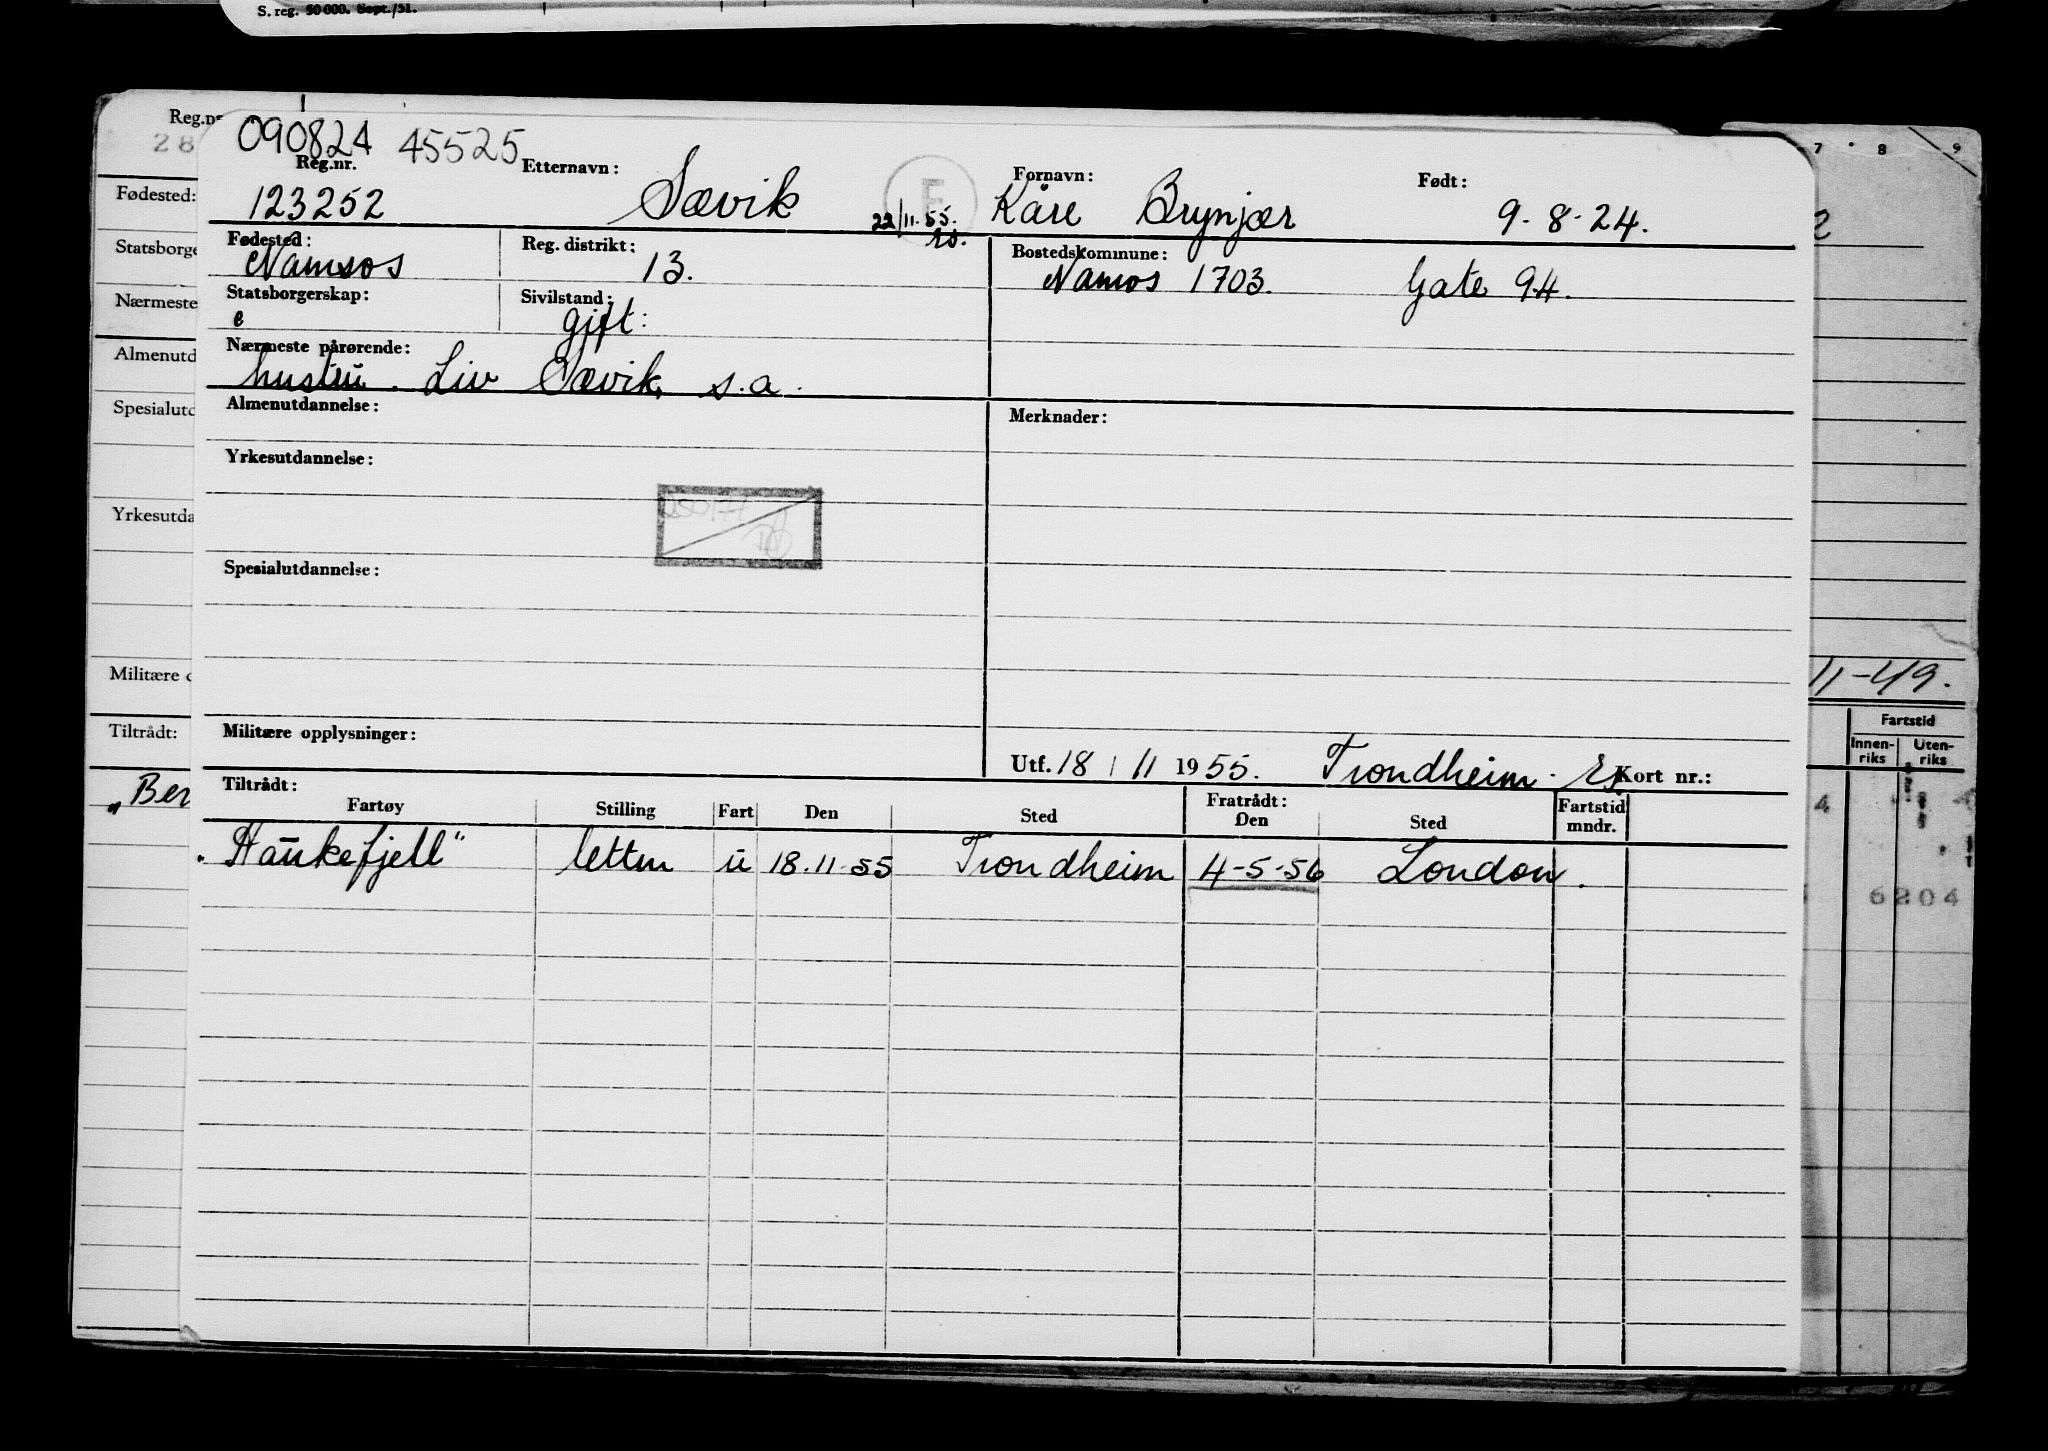 S. reg. 50 000. Sept./51.
Reg.nr
28
Fødested:
Statsborge
Nærmeste
Almenutd
Spesialutd
Yrkesutda
Militære
Tiltrådt:
„Ber
090824 45525
Reg.nr. Etternavn: Fornavn: Født:
123252 Sævik E 22/11.55. rs. Kåre Brynjær 9.8.24.
Fødested: Reg. distrikt: Bostedskommune:
Namsos 13. Namsos 1703. Gate 94.
Statsborgerskap: Sivilstand:
e gift:
Nærmeste pårørende:
hustru. Liv Sævik, s.a.
Almenutdannelse: Merknader:
Yrkesutdannelse:
Spesialutdannelse:
Militære opplysninger:
Utf. 18 / 11 1955. Trondheim. Kort nr.:
Tiltrådt: Fratrådt: Fartstid mndr.
Fartøy Stilling Fart Den Sted Den Sted
„Haukefjell" letten u 18.11.55 Trondheim 4-5-56 London.
7 8 9
2
11-49.
Fartstid
Innen-riks Uten-riks
4
6204